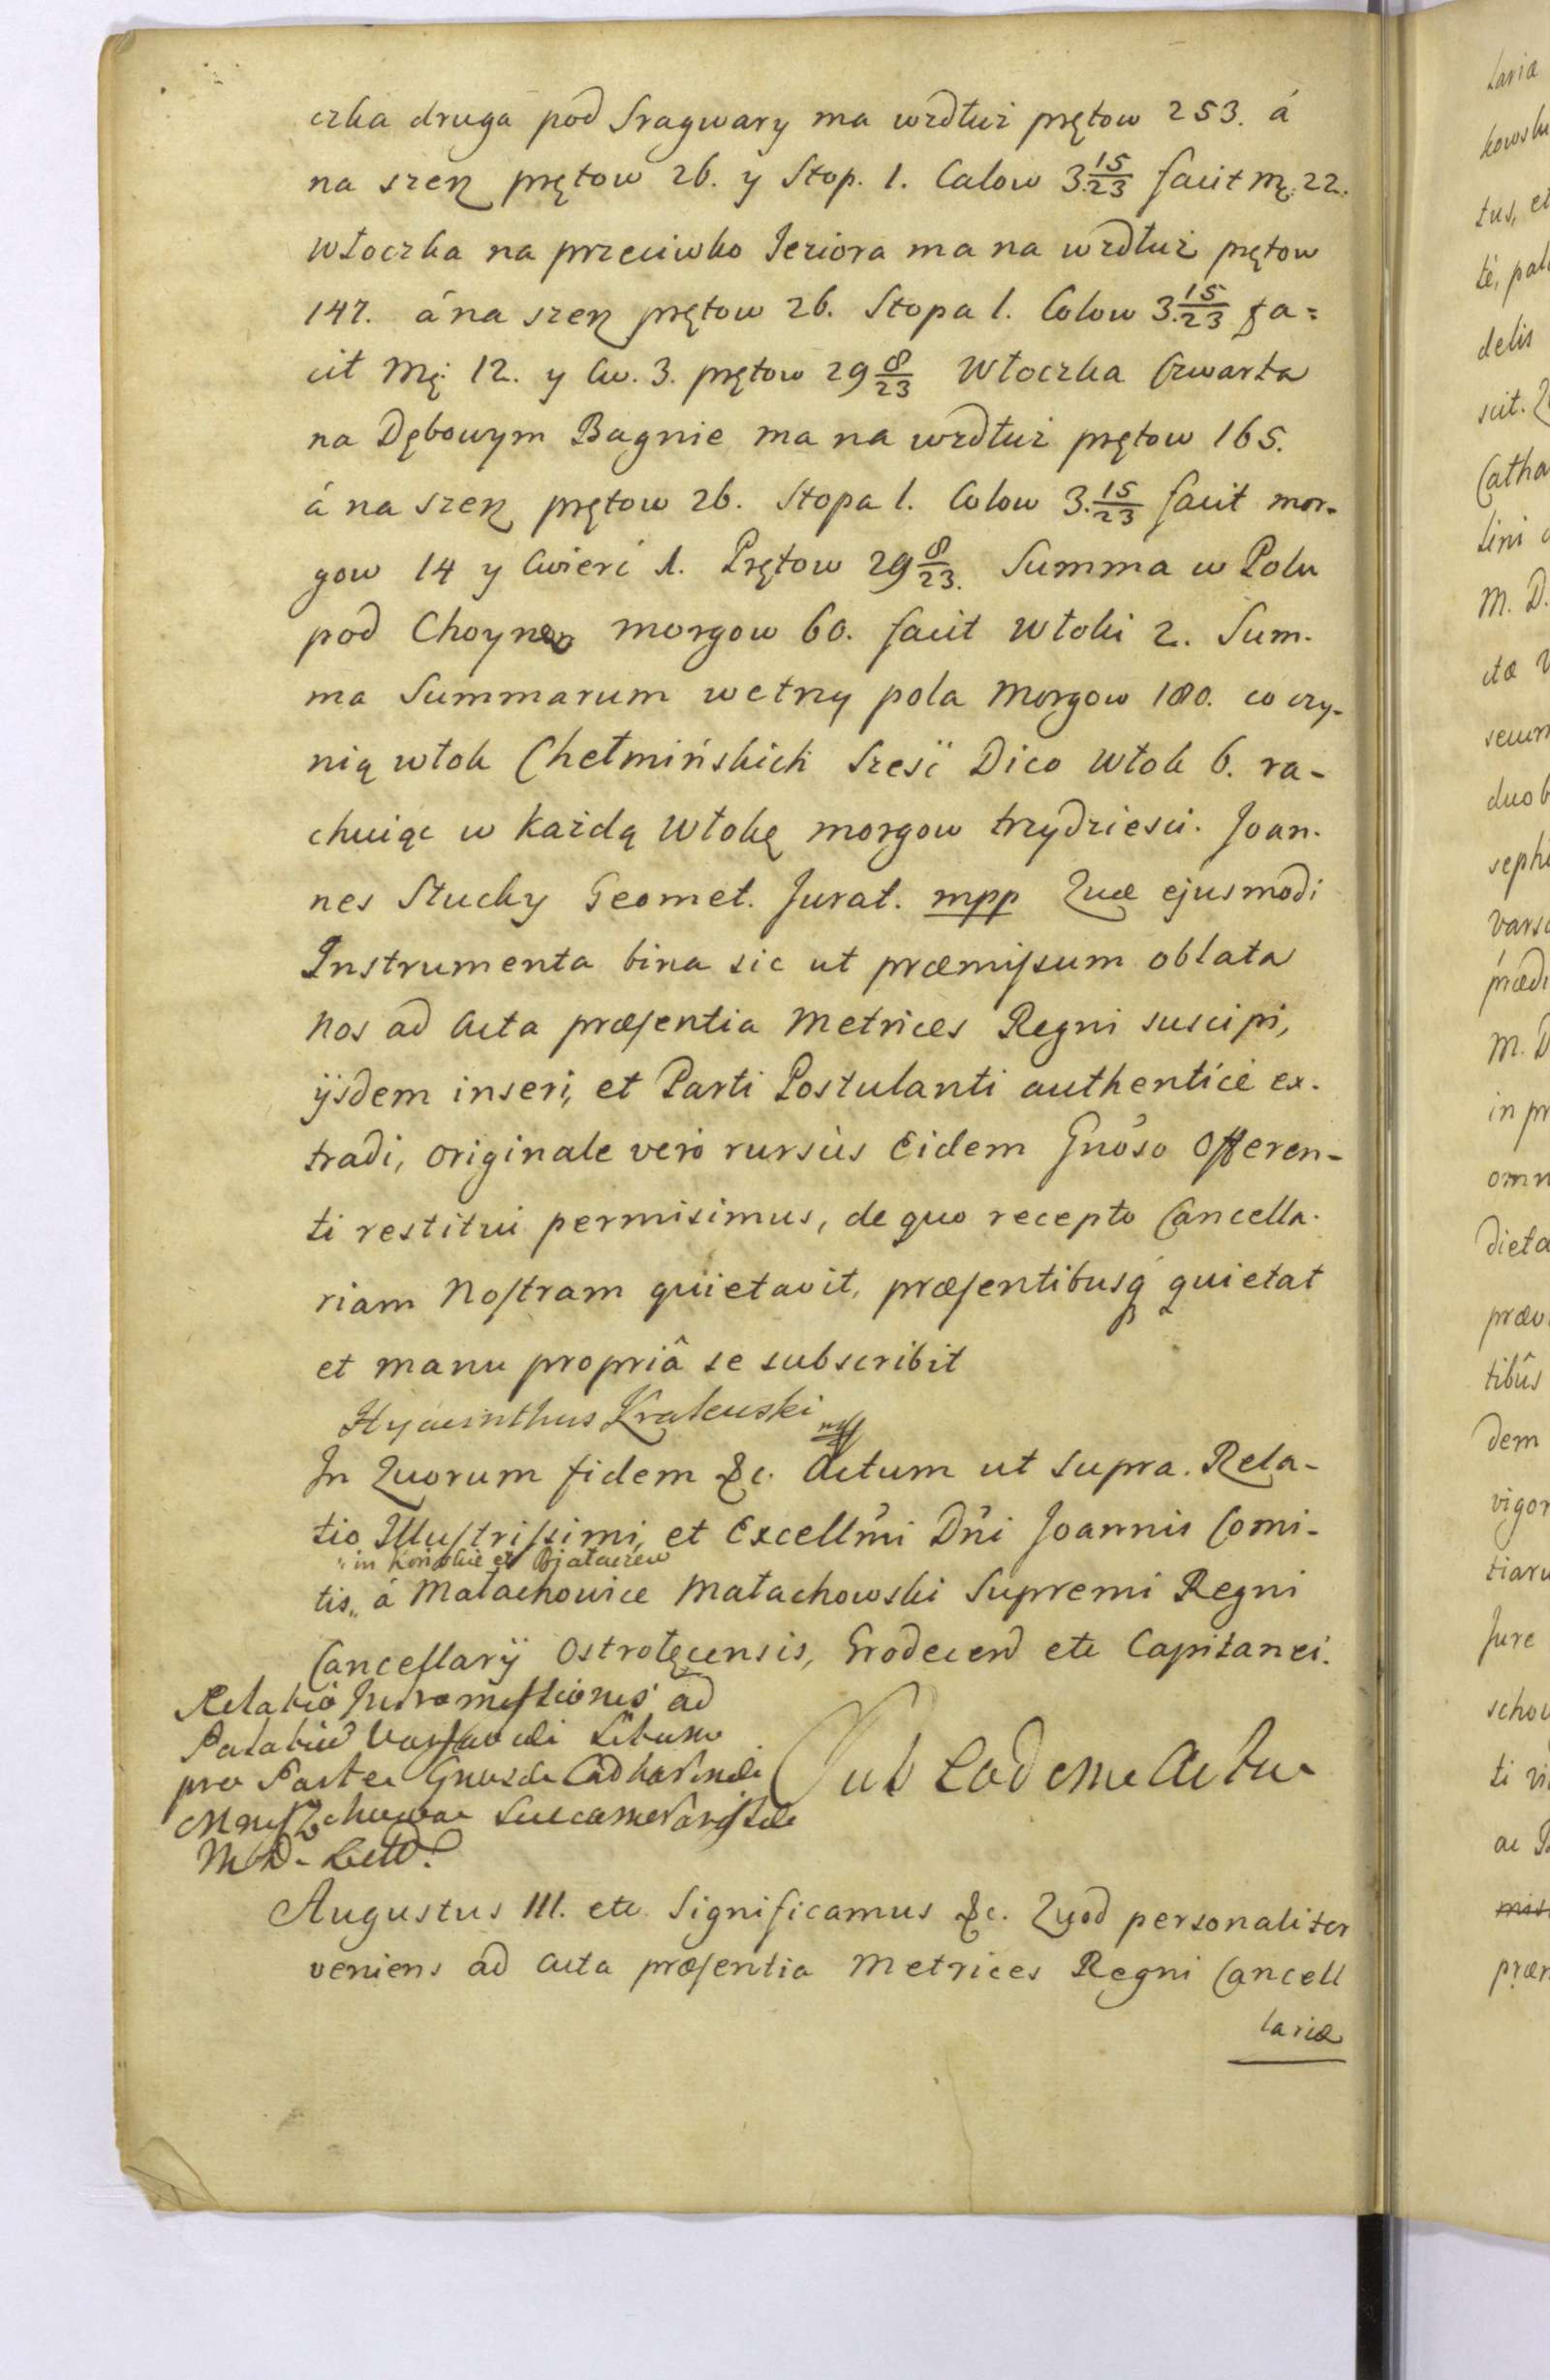 czka druga pod Sragwary ma wzdłuż prętow 253. á
na szerz prętow 26. y Stop. 1. Calow 3. 15/23 facit mę: 22.
Włoczka na przeciwko Jeziora ma na wzdłuż prętow
147. á na szerz prętow 26. Stopa 1. Calow 3. 15/23 fa=
cit Mę: 12. y Cw. 3. prętow 29 8/23 Włoczka Czwarta
na Dębowym Bagnie ma na wzdłuż prętow 165.
á na szerz prętow 26. Stopa 1. Calow 3. 15/23 facit mor-
gow 14 y Cwierć 1. Prętow 29 8/23. Summa w Polu
pod Choyną morgow 60. facit Włoki 2. Sum-
ma Summarum we trzy pola Morgow 180. co czy-
nią włok Chełmińskich Sześć Dico Włok 6. ra-
chuiąc w Każdą Włokę morgow trzydziesci. Joan-
nes Stucky Geomet. Jurat. mpp Quæ ejusmodi
Instrumenta bina sic ut præmissum oblata
Nos ad Acta præsentia Metrices Regni suscipi,
ijsdem inseri, et Parti Postulanti authenticè ex-
tradi, originale verò rursùs Eidem Gnôso Offeren-
ti restitui permisimus, de quo recepto Cancella-
riam Nostram quietavit, præsentibusq́ quietat
et manu propriâ se subscribit
Hyacinthus Kralewski mpp
In Quorum fidem &c. Actum ut supra. Rela-
tio Illustrissimi, et Excellm̃i Dñi Joannis Comi-
" in Końskie et Bjałaczew
tis„ á Małachowice Małachowski Supremi Regni
Cancellarij Ostrołęcensis, Grodecen̄ etc Capitanei.
Relatio Intromissionis ad
Palatiũ Varsaviæ Situm
pro Parte Gnosæ Catharinæ
Mniszchowa Succamerarissæ
M. D. Litt.
Sub Eodem Actu
Augustus III. etc Significamus &c. Quod personaliter
veniens ad Acta præsentia Metrices Regni Cancell
lariæ